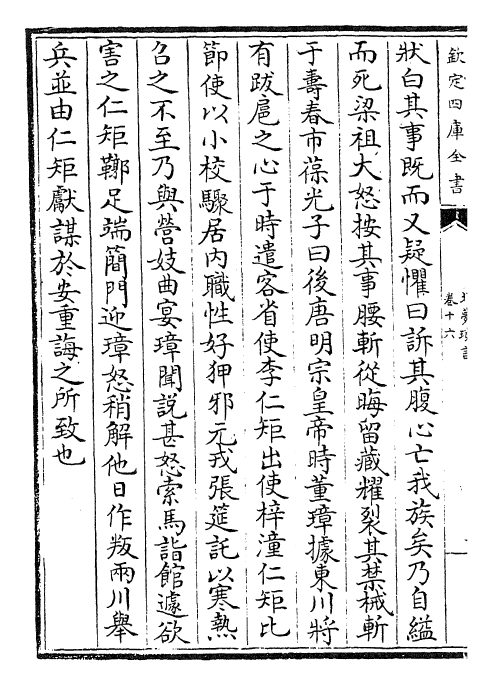 欽定四庫全書
卷十六
狀白其事既而又疑懼曰訴其腹心亡我族矣乃自縊
而死梁祖大怒按其事腰斬從晦留藏耀裂其禁械斬
于壽春市葆光子曰後唐明宗皇帝時董璋據東川將
有跋扈之心于時遣客省使李仁矩出使梓潼仁矩比
節使以小校驟居内職性好狎邪元戎張筵託以寒熱
召之不至乃與營妓曲宴璋聞説甚怒索馬詣館遽欲
害之仁矩鞹足端簡門迎璋怒稍解他日作叛兩川舉
兵並由仁矩獻謀於安重誨之所致也